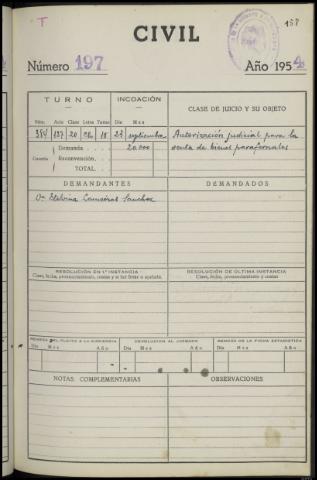 T
158
CIVIL
Número 197 Año 1954
TURNO INCOACIÓN CLASE DE JUICIO Y SU OBJETO
Núm. Año Clase Letra Tomo Día Mes
384 20 18 23 septiembre Autorización judicial para la
Cuantía Demanda 20.000 venta de bienes parafernales
Reconvención
TOTAL
DEMANDANTES DEMANDADOS
Dª
RESOLUCIÓN EN 1ª INSTANCIA RESOLUCIÓN DE ÚLTIMA INSTANCIA
Clase, fecha, pronunciamiento, costas y si fué firme o apelada. Clase, fecha, pronunciamiento y costas
REMESA DEL PLEITO A LA AUDIENCIA DEVOLUCIÓN AL JUZGADO REMESA DE LA FICHA ESTADÍSTICA
Día Mes Año Día Mes Año Día Mes Año
NOTAS COMPLEMENTARIAS OBSERVACIONES